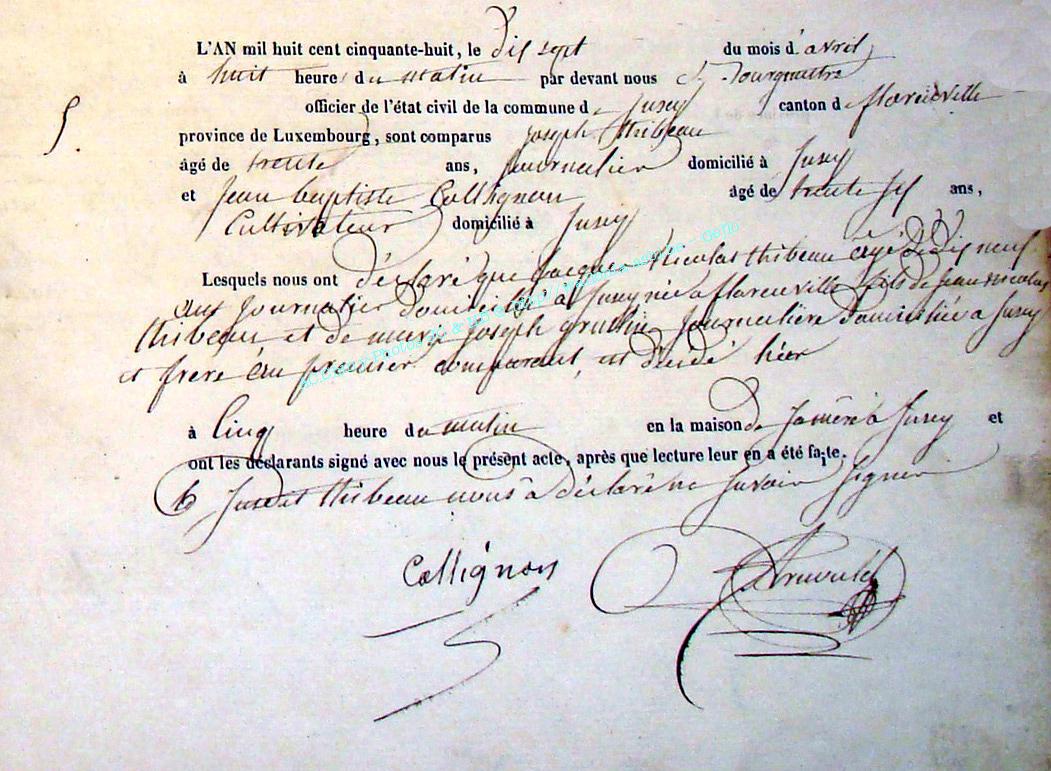 L'AN mil huit cent cinquante-huit, le dix sept du mois d'avril
à huit heure du matin par devant nous
officier de l'état civil de la commune de Jusey canton de florenville
5.
province de Luxembourg, sont comparus joseph thibeau
âgé de trente ans, journalier domicilié à Jusey
et jean baptiste Collignon âgé de trente six ans,
Cultivateur domicilié à Jusey
Lesquels nous ont déclaré que jacques Nicolas thibeau agé de dix neuf
ans journalier domicilié à Jusey née a florenville fils de jean nicolas
thibeau et de marie joseph journalière domiciliée a Jusey
et frère du premier comparant, est décédé hier
à Cinq heure du matin en la maison de sa mère à Jusey et
ont les déclarants signé avec nous le présent acte, après que lecture leur en a été faite.
le susdit thibeau nous a déclaré ne savoir signer
Collignon